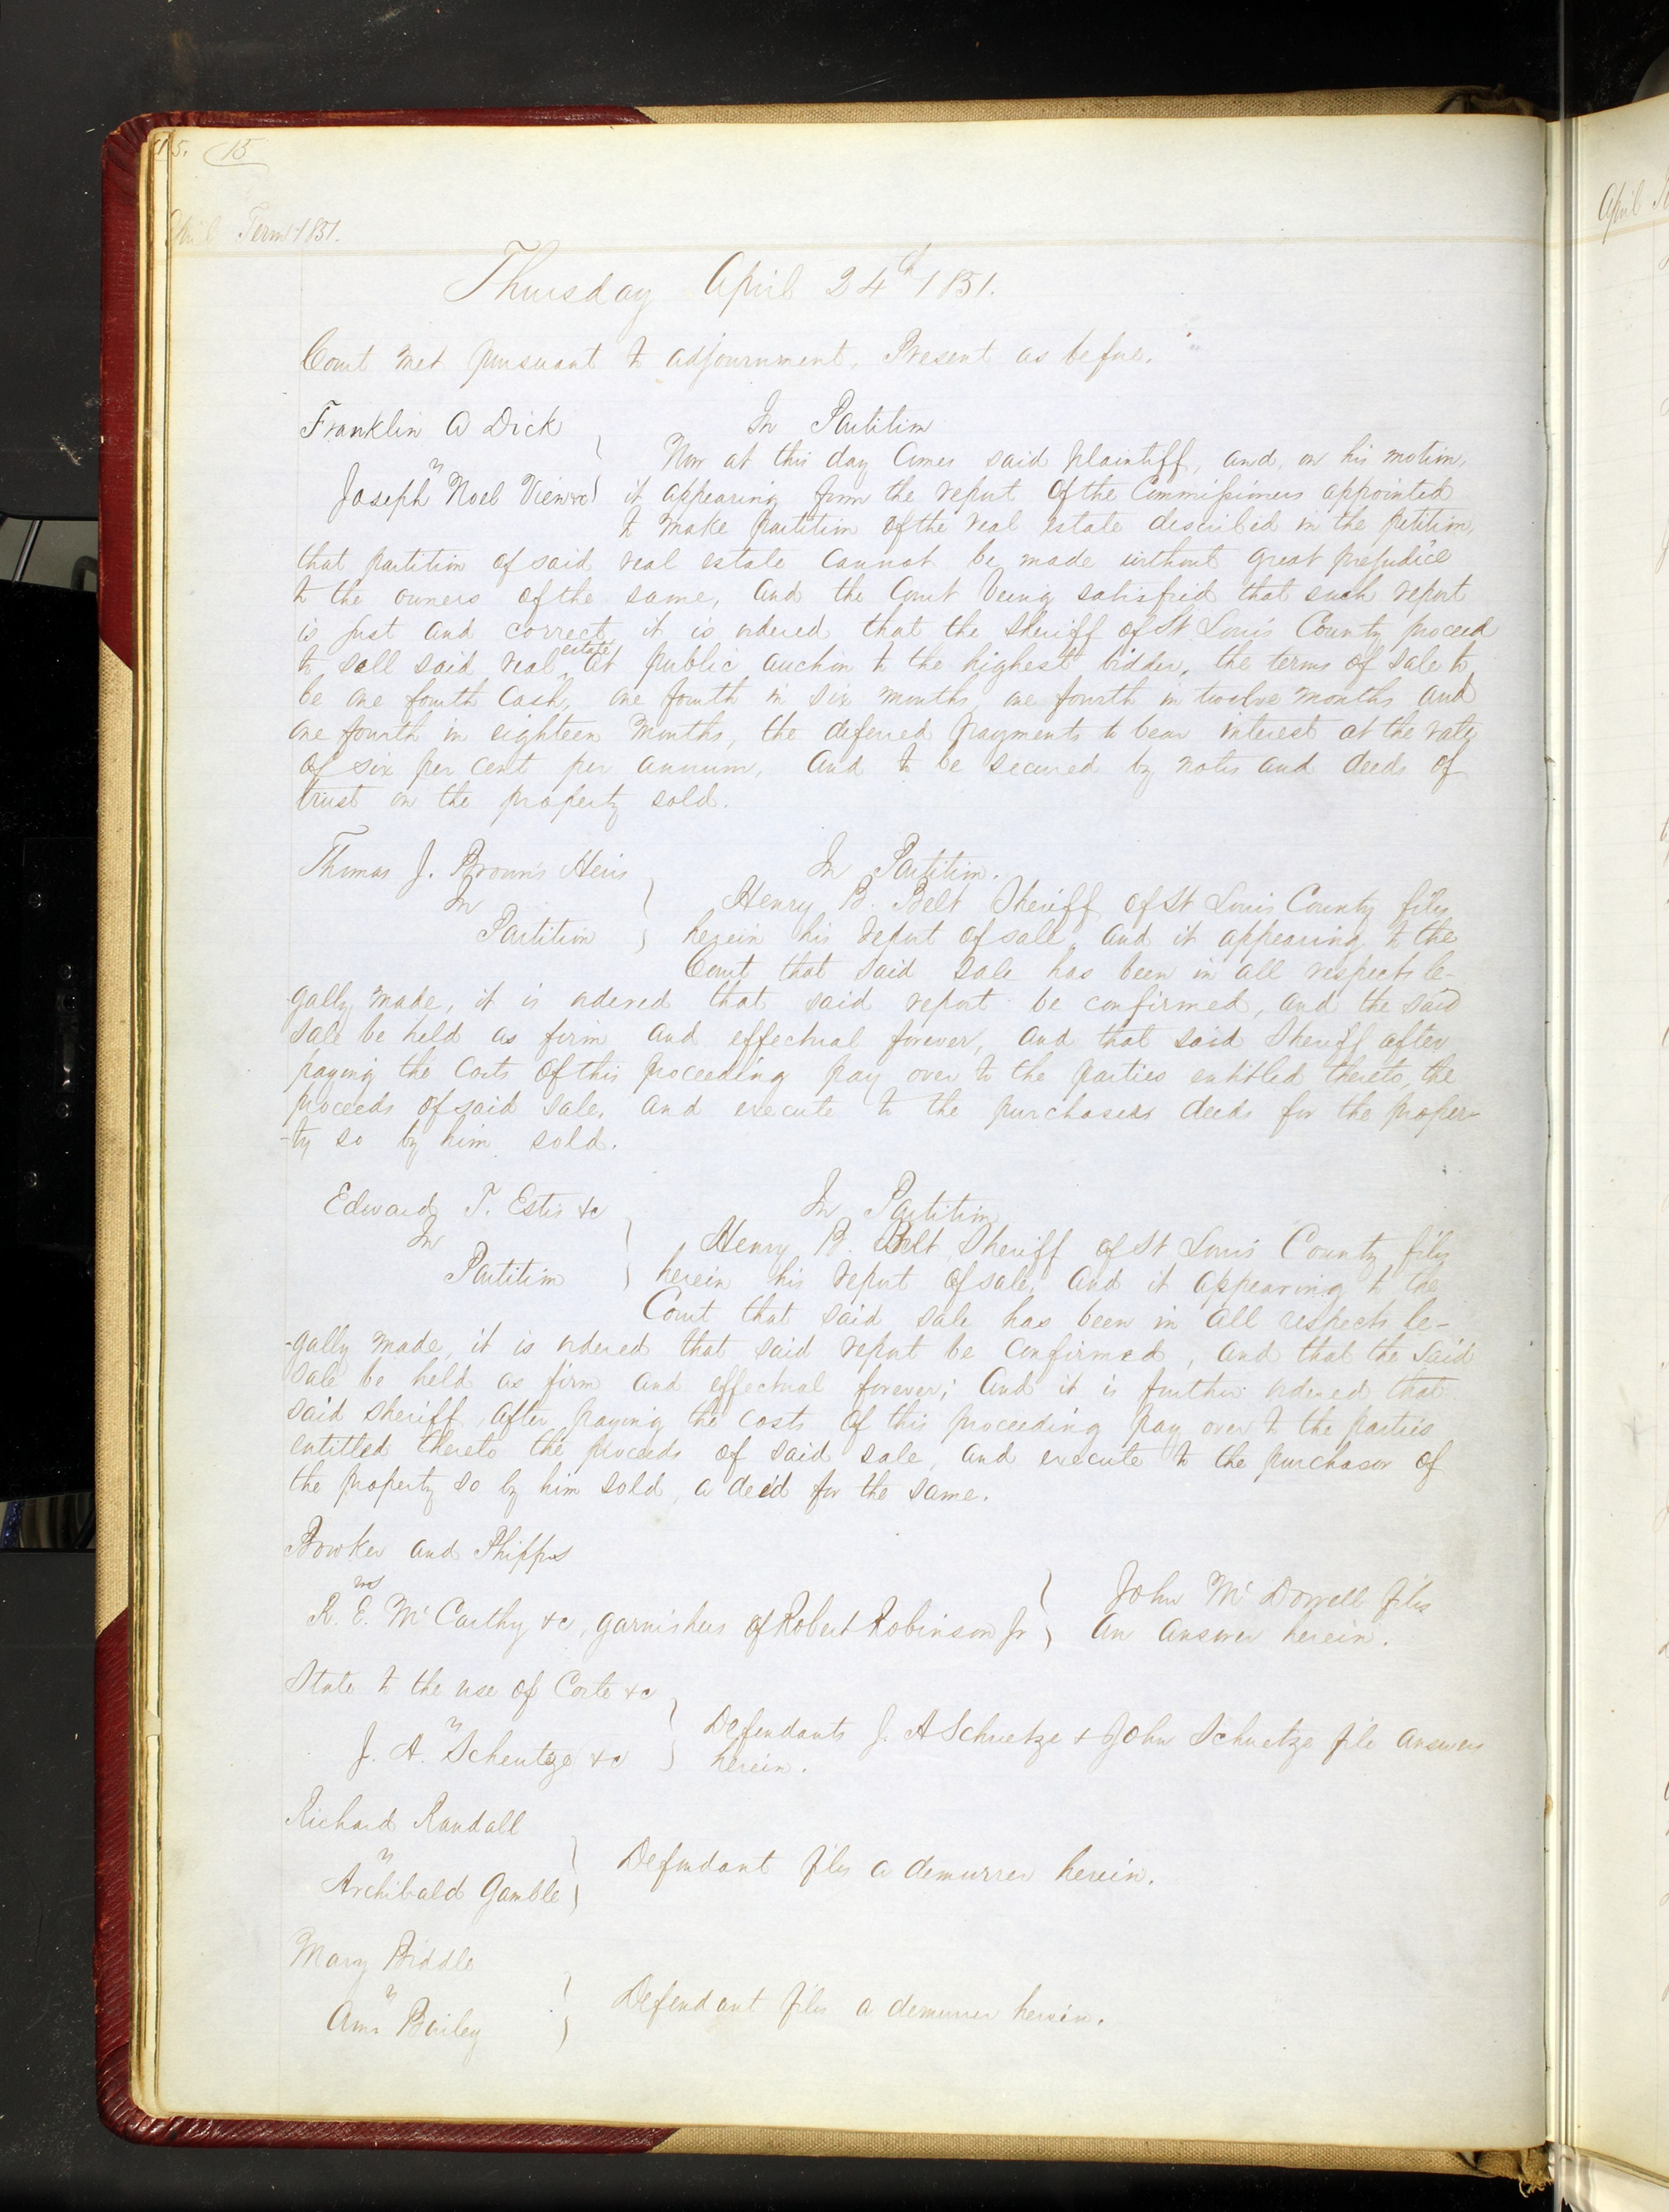 15. 15
April Term 1851.
Thursday April 24th 1851.
Court met pursuant to adjournment. Present as before.
Franklin A Dick
vs
Joseph Noel Vien &c
In Partition
Now at this day comes said plaintiff, and, on his motion,
it appearing from the report of the Commissioners appointed
to make partition of the real estate described in the petition,
that partition of said real estate cannot be made without great prejudice
to the owners of the same, and the Court being satisfied that such report
is just and correct, it is ordered that the Sheriff of St Louis County proceed
to sell said real estate at public auction to the highest bidder, the terms of sale to
be one fourth cash, one fourth in six months, one fourth in twelve months and
one fourth in eighteen months, the deferred payments to bear interest at the rate
of six per cent per annum, and to be secured by notes and deeds of
trust on the property sold.
Thomas J. Brown's Heirs
In
Partition
In Partition.
Henry B. Belt Sheriff of St Louis County files
herein his report of sale, and it appearing to the
Court that said sale has been in all respects le-
gally made, it is ordered that said report be confirmed, and the said
sale be held as firm and effectual forever, and that said Sheriff after
paying the costs of this proceeding pay over to the parties entitled thereto, the
proceeds of said sale, and execute to the purchasers deeds for the proper-
-ty so by him sold.
Edward T. Estis &c
In
Partition
In Partition
Henry B. Belt Sheriff of St Louis County files
herein his report of sale, and it appearing to the
Court that said sale has been in all respects le-
-gally made, it is ordered that said report be confirmed, and that the said
sale be held as firm and effectual forever; and it is further ordered that
said sheriff, after paying the costs of this proceeding pay over to the parties
entitled thereto the proceeds of said sale, and execute to the purchaser of
the property so by him sold, a deed for the same.
Bowker and Phipps
vs
R. E. McCarthy &c, garnishees of Robert Robinson Jr
John McDowell files
an answer herein.
State to the use of Corte &c
vs
J. A. Scheutze &c
Defendants J. A Schuetze & John Schuetze file answers
herein.
Richard Randall
vs
Archibald Gamble
Defendant files a demurrer herein.
Mary Biddle
vs
Ann Bailey
Defendant files a demurrer herein.
April